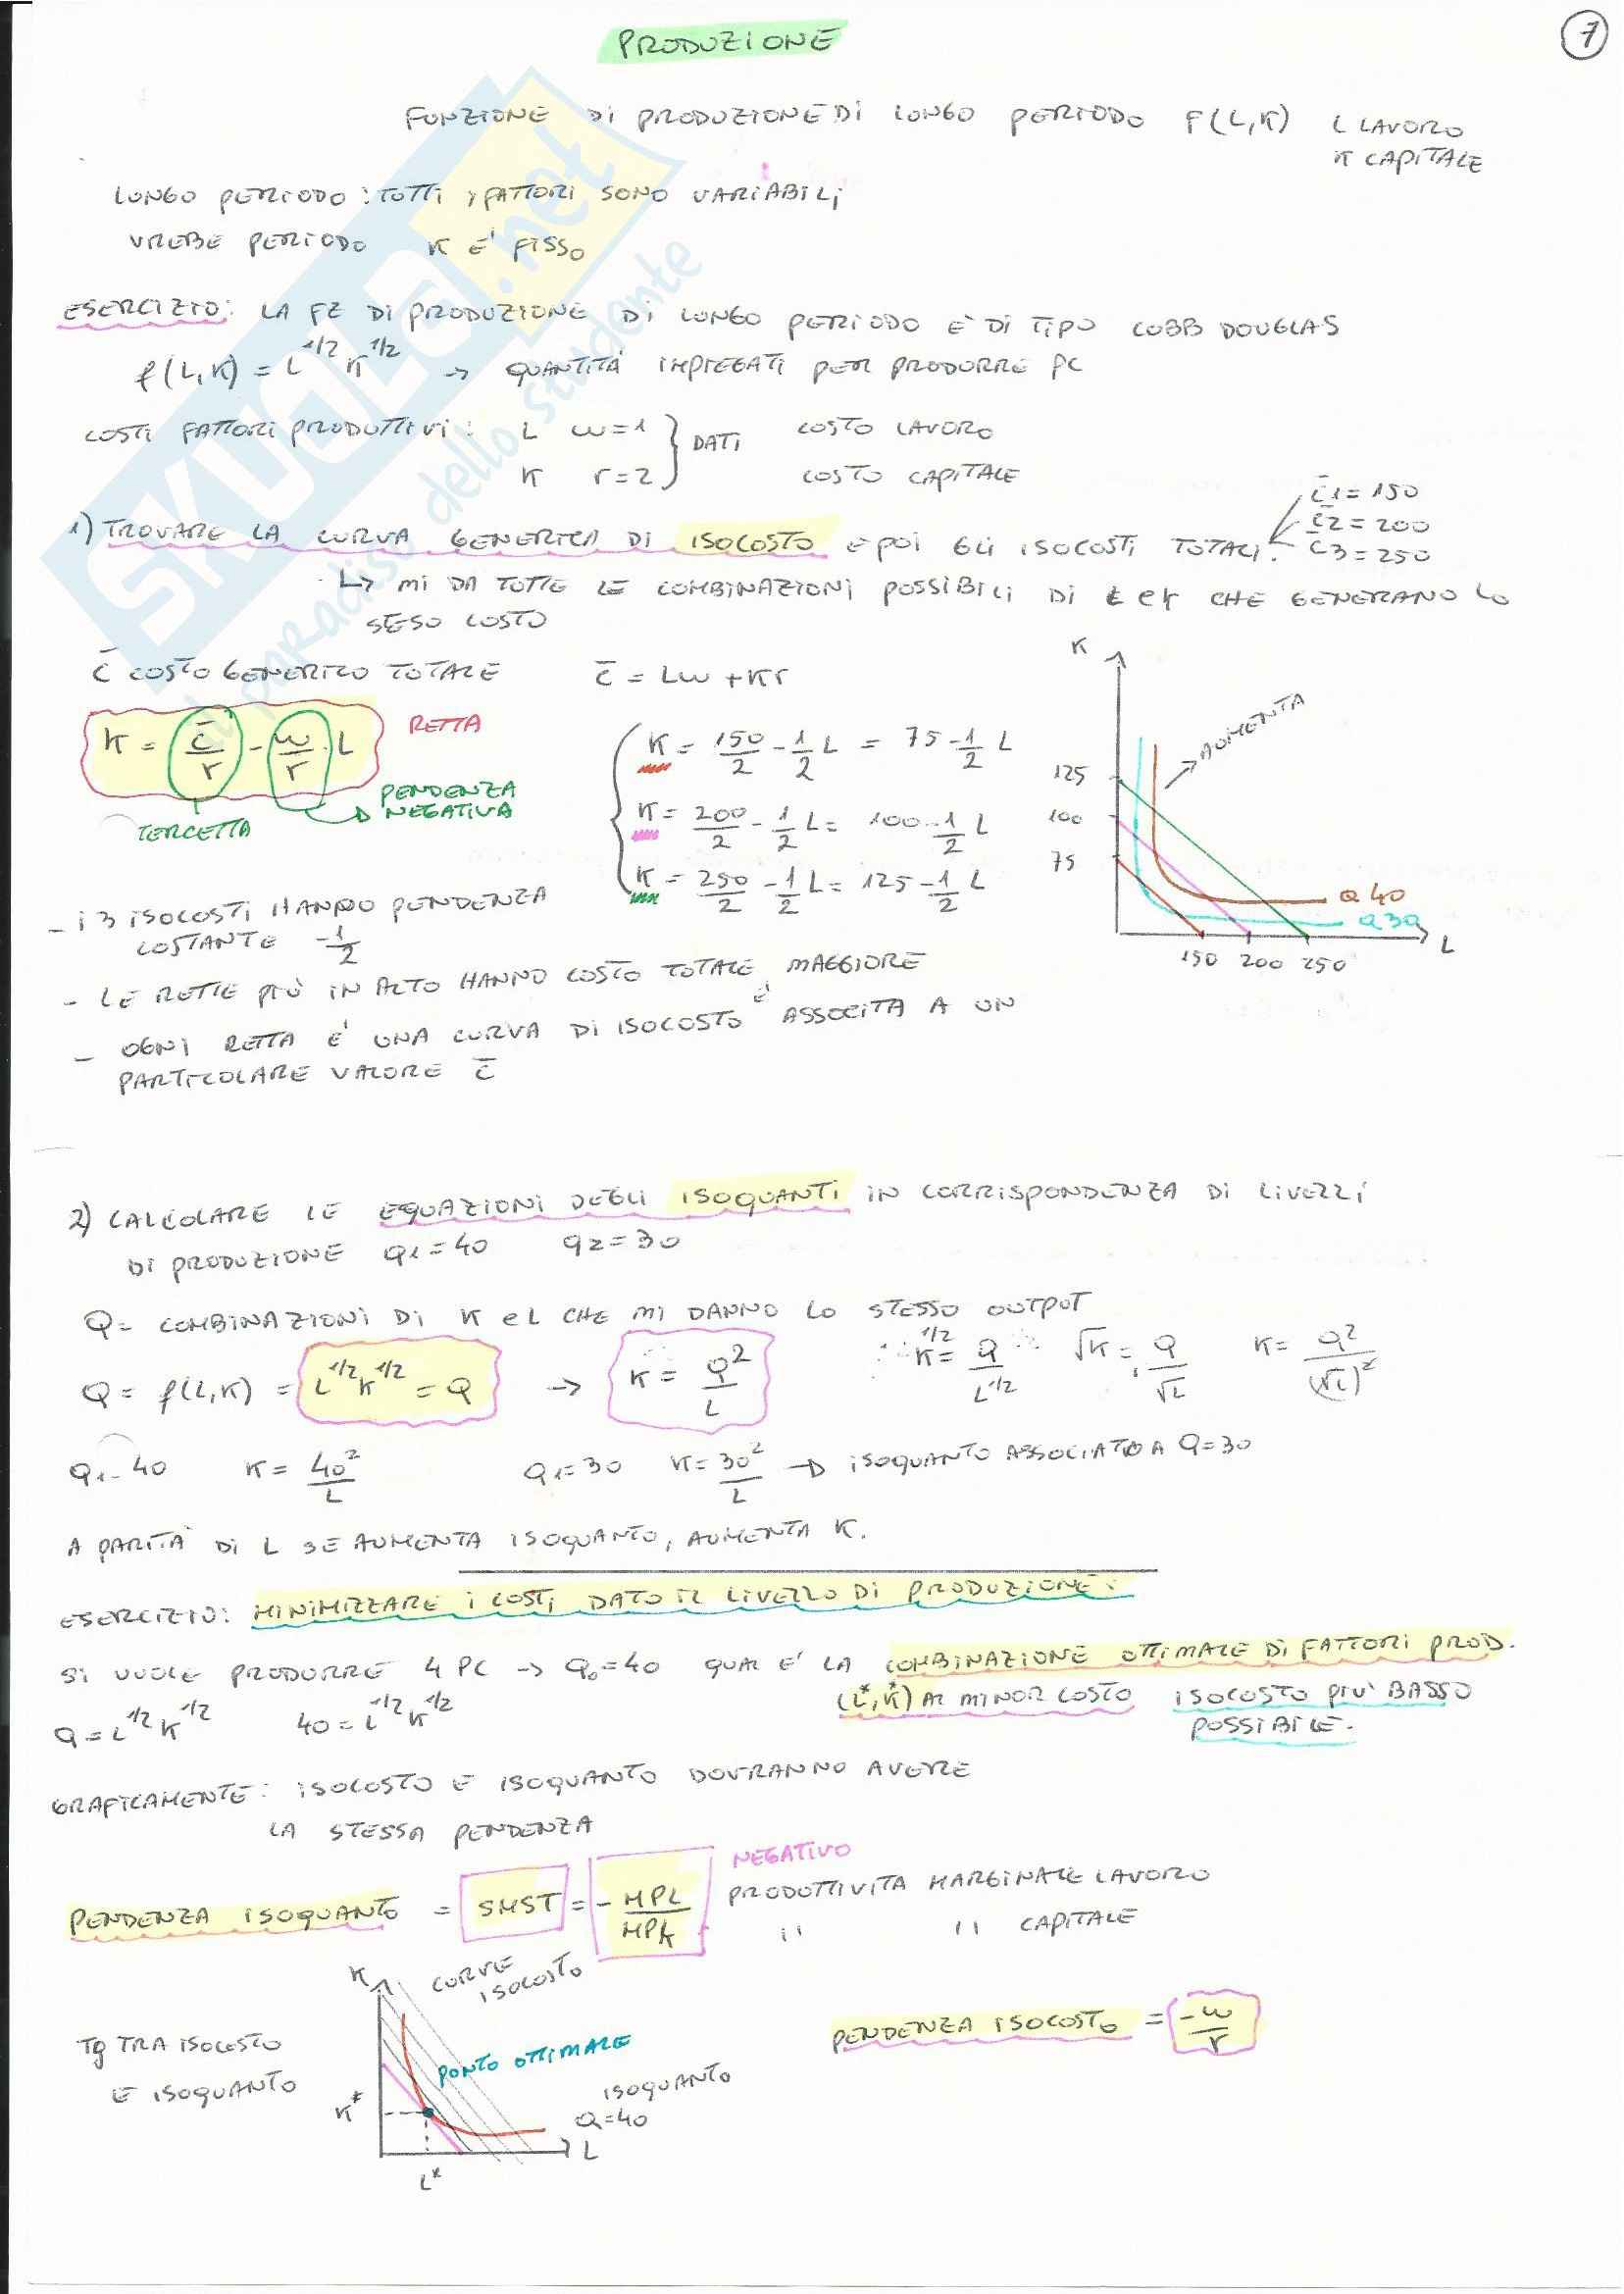 7
PRODUZIONE
FUNZIONE DI PRODUZIONE DI LUNGO PERIODO F(L,K) L LAVORO
K CAPITALE
LUNGO PERIODO: TUTTI I FATTORI SONO VARIABILI
PERIODO K E' FISSO
ESERCIZIO: LA FZ DI PRODUZIONE DI LUNGO PERIODO E' DI TIPO COBB DOUGLAS
f(L,K) = L^1/2 K^1/2 → QUANTITÀ IMPIEGATI PER PRODURRE PC
COSTI FATTORI PRODUTTIVI: L w=1 } DATI COSTO LAVORO
K r=2 COSTO CAPITALE
C̄1=150
C̄2=200
C̄3=250
1) TROVARE LA CURVA GENERICA DI ISOCOSTO E POI GLI ISOCOSTI TOTALI.
↳ MI DA TUTTE LE COMBINAZIONI POSSIBILI DI L e K CHE GENERANO LO
SESO COSTO
C̄ COSTO GENERICO TOTALE C̄ = Lw + Kr
K = C̄/r - w/r · L RETTA
PENDENZA NEGATIVA
K = 150/2 - 1/2 L = 75 - 1/2 L
K = 200/2 - 1/2 L = 100 - 1/2 L
K = 250/2 - 1/2 L = 125 - 1/2 L
K
AUMENTA
125
100
75
Q 40
Q 30
L
150 200 250
- I 3 ISOCOSTI HANNO PENDENZA
COSTANTE -1/2
- LE RETTE PIÙ IN ALTO HANNO COSTO TOTALE MAGGIORE
- OGNI RETTA E' UNA CURVA DI ISOCOSTO E' ASSOCITA A UN
PARTICOLARE VALORE C̄
2) CALCOLARE LE EQUAZIONI DEGLI ISOQUANTI IN CORRISPONDENZA DI LIVELLI
DI PRODUZIONE q1=40 q2=30
Q = COMBINAZIONI DI K e L CHE MI DANNO LO STESSO OUTPUT
Q = f(L,K) = L^1/2 K^1/2 = Q → K = Q²/L K^1/2 = Q/L^1/2 √K = Q/√L K = Q²/(√L)²
Q1 = 40 K = 40²/L Q1 = 30 K = 30²/L → ISOQUANTO ASSOCIATO A Q=30
A PARITÀ DI L SE AUMENTA ISOQUANTO, AUMENTA K.
ESERCIZIO: MINIMIZZARE I COSTI DATO IL LIVELLO DI PRODUZIONE:
SI VUOLE PRODURRE 4 PC → Q0=40 QUAL E' LA COMBINAZIONE OTTIMALE DI FATTORI PROD.
(L*,K*) AL MINOR COSTO ISOCOSTO PIU' BASSO
POSSIBILE.
Q = L^1/2 K^1/2 40 = L^1/2 K^1/2
GRAFICAMENTE: ISOCOSTO E ISOQUANTO DOVRANNO AVERE
LA STESSA PENDENZA
NEGATIVO
PENDENZA ISOQUANTO = SMST = -MPL/MPK PRODUTTIVITA MARGINALE LAVORO
" " CAPITALE
K CURVE
ISOCOSTO
TG TRA ISOCOSTO
E ISOQUANTO
PUNTO OTTIMALE
PENDENZA ISOCOSTO = -w/r
ISOQUANTO
Q=40
K*
L
L*
SKUOLA.net
il paradiso dello studente